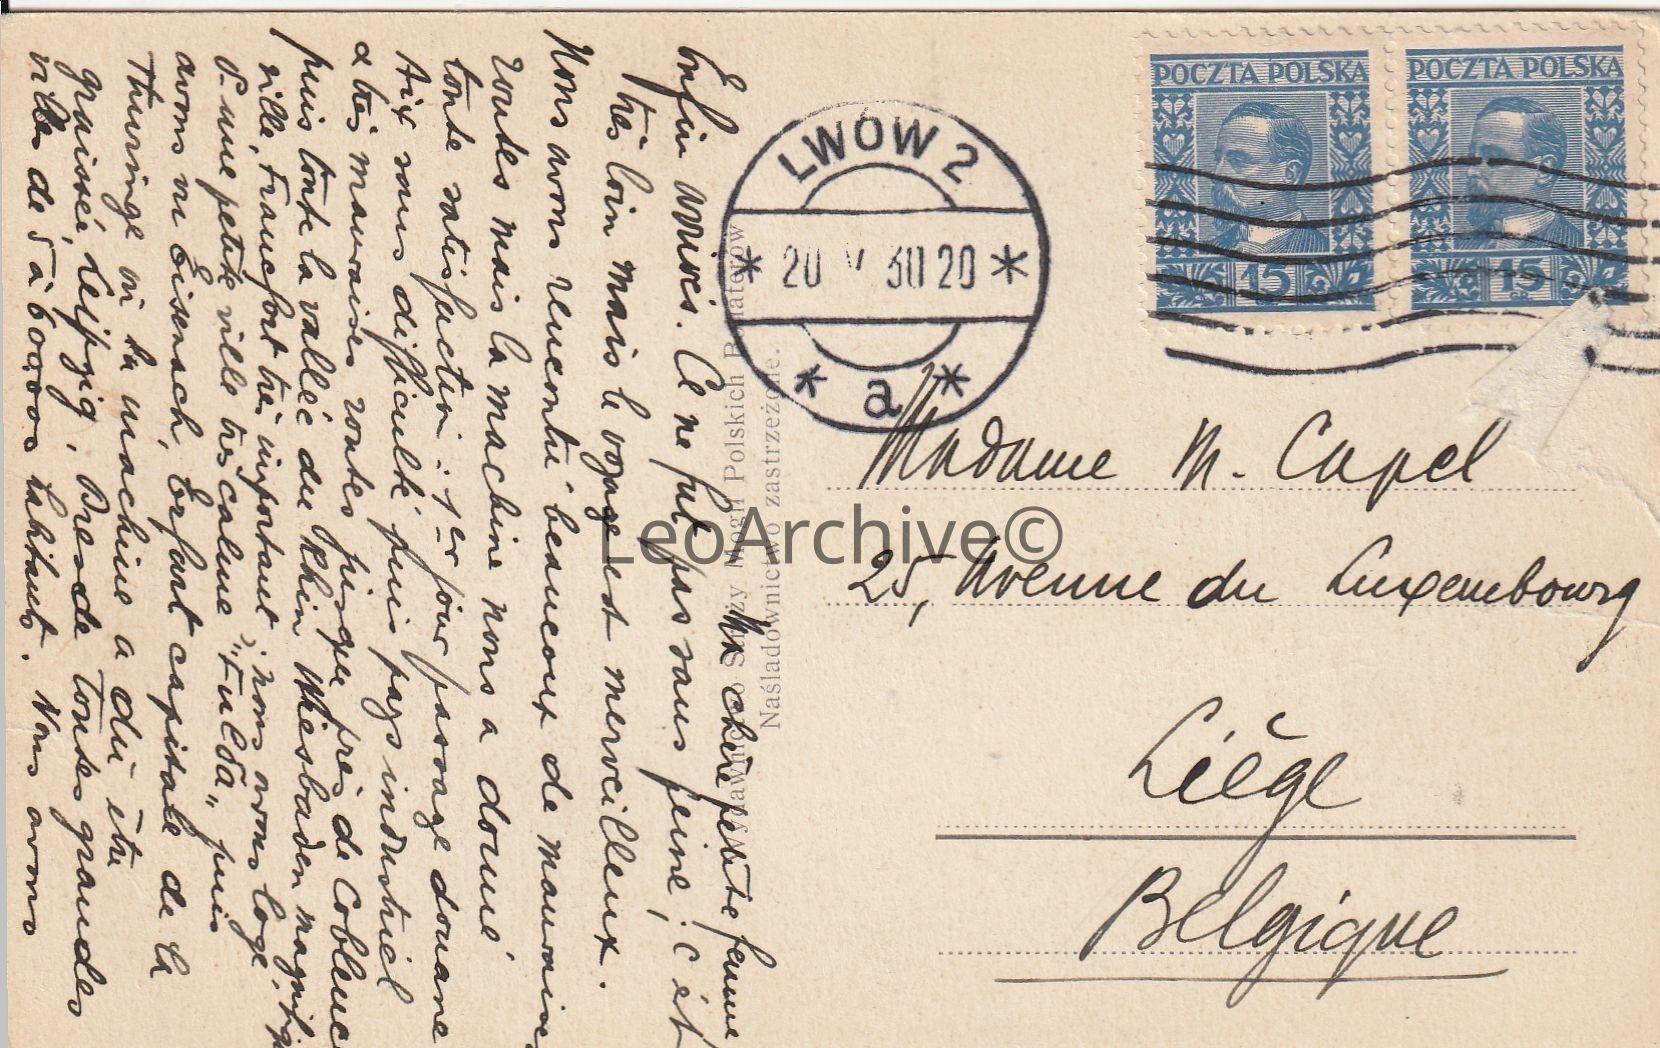 POCZTA POLSKA
15
POCZTA POLSKA
15
LWÓW 2
* 20 V 30 20 *
* a *
Madame M. Capel
25, Avenue du Luxembourg
Liège
Belgique
Polskich
Naśladownictwo zastrzeżone.
LeoArchive©
Ma chère petite femme
Enfin arrivés. Ce ne fut pas sans peine; c'est
très loin mais le voyage est merveilleux.
Nous avons rencontré beaucoup de mauvaises
routes mais la machine nous a donné
toute satisfaction: 1er jour passage douane
Aix sans difficulté puis pays industriel
& très mauvaises routes jusque près de Coblence
puis toute la vallée du Rhin Wiesbaden
ville, Francfort très important; nous avons logé
d. une petite ville très calme "Fulda" puis
avons vu Eisenach, Erfurt capitale de la
Thuringe où la machine a dû être
graissée, Leipzig, Dresde toutes grandes
villes de 5 à 600000 habitants. Nous avons